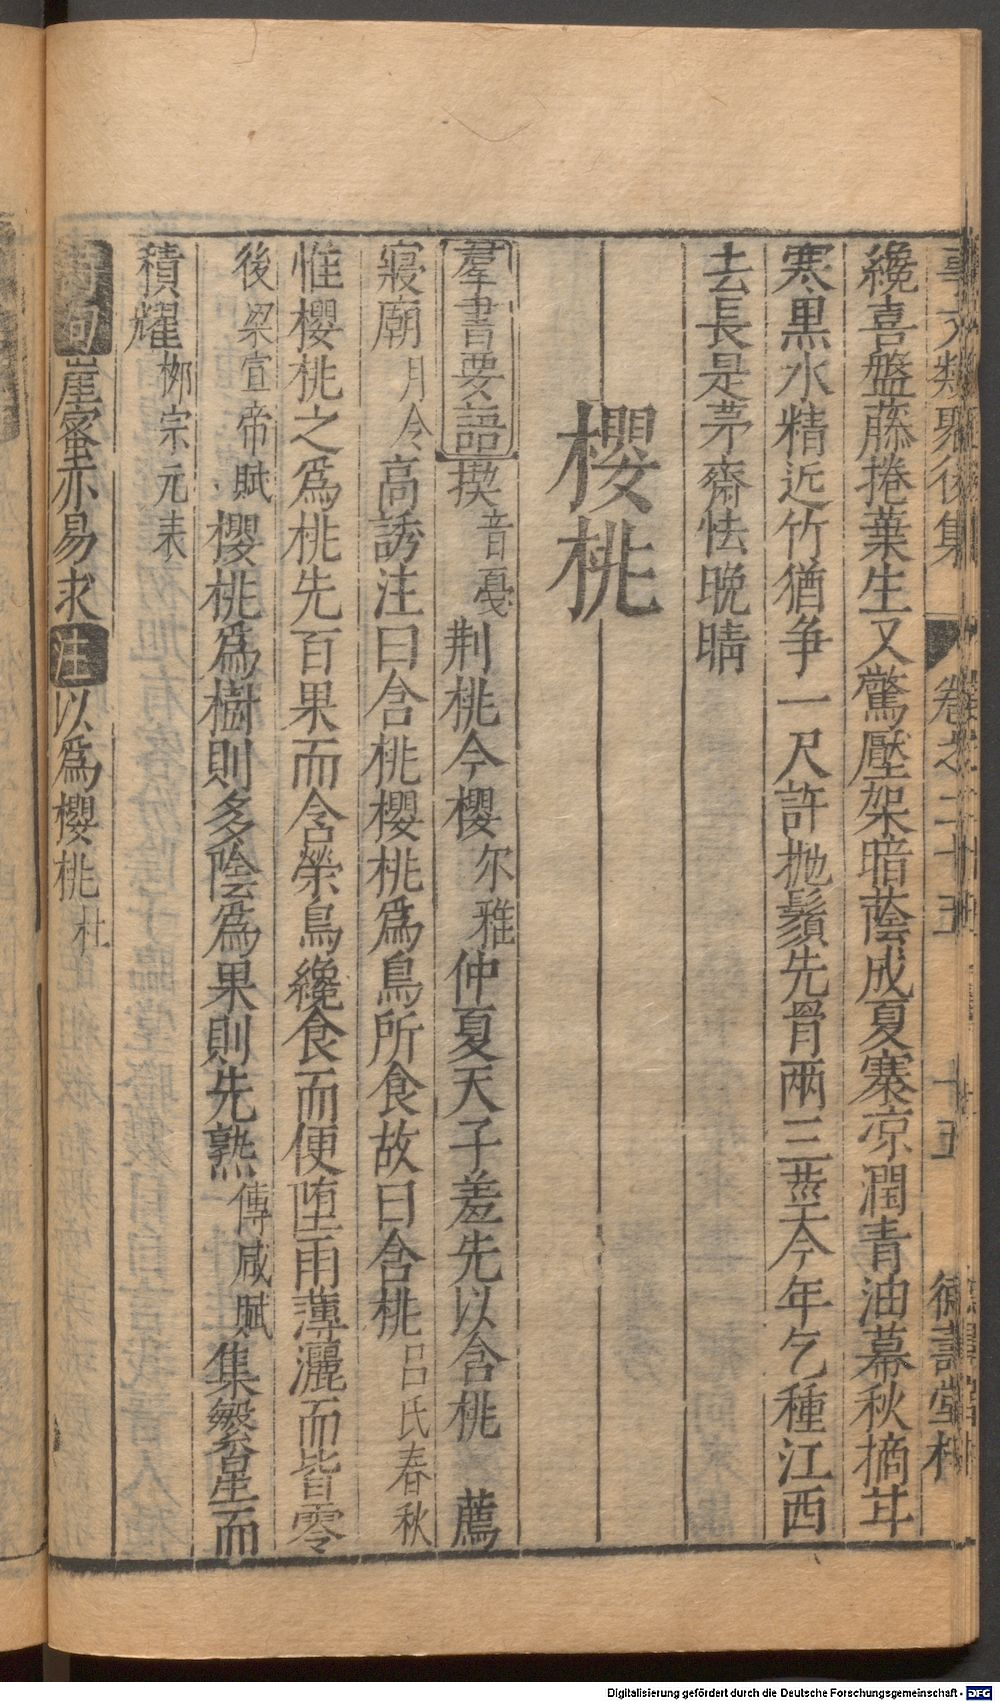 事文類聚後集 卷之二十五 十五 德壽堂梓
纔喜盤藤捲葉生又驚壓架暗蔭成夏寨凉潤青油幕秋摘甘
寒黒水精近竹猶争一尺許抛鬚先胃兩三莖今年乞種江西
去長是茅齋怯晩晴
櫻桃
羣書要語楔音戞荆桃今櫻尔雅仲夏天子羞先以含桃 薦
寢廟月令高誘注曰含桃櫻桃爲鳥所食故曰含桃吕氏春秋
惟櫻桃之爲桃先百果而含榮鳥纔食而便堕雨薄灑而皆零
後梁宣帝賦櫻桃爲樹則多陰爲果則先熟傳咸賦集繁星而
積耀栁宗元表
詩句崖蜜亦易求注以爲櫻桃杜
Digitalisierung gefördert durch die Deutsche Forschungsgemeinschaft - DFG